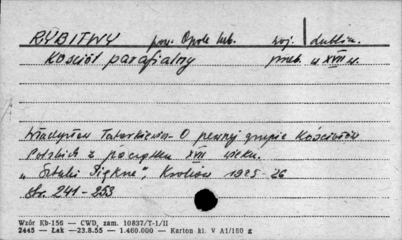 RYBITWY pow. Opole lub. woj. lublin.
Kościół parafialny przeb. w XVII w.
Władysław Tatarkiewicz - O pewnej grupie Kościołów
Polskich z początku XVII wieku.
"Sztuki Piękne", Kraków 1925-26
str. 241-253
Wzór Kb-156 — CWD, zam. 10837/T-1/II
2445 — Łak — 23.8.55 — 1.460.000 — Karton kl. V A1/180 g